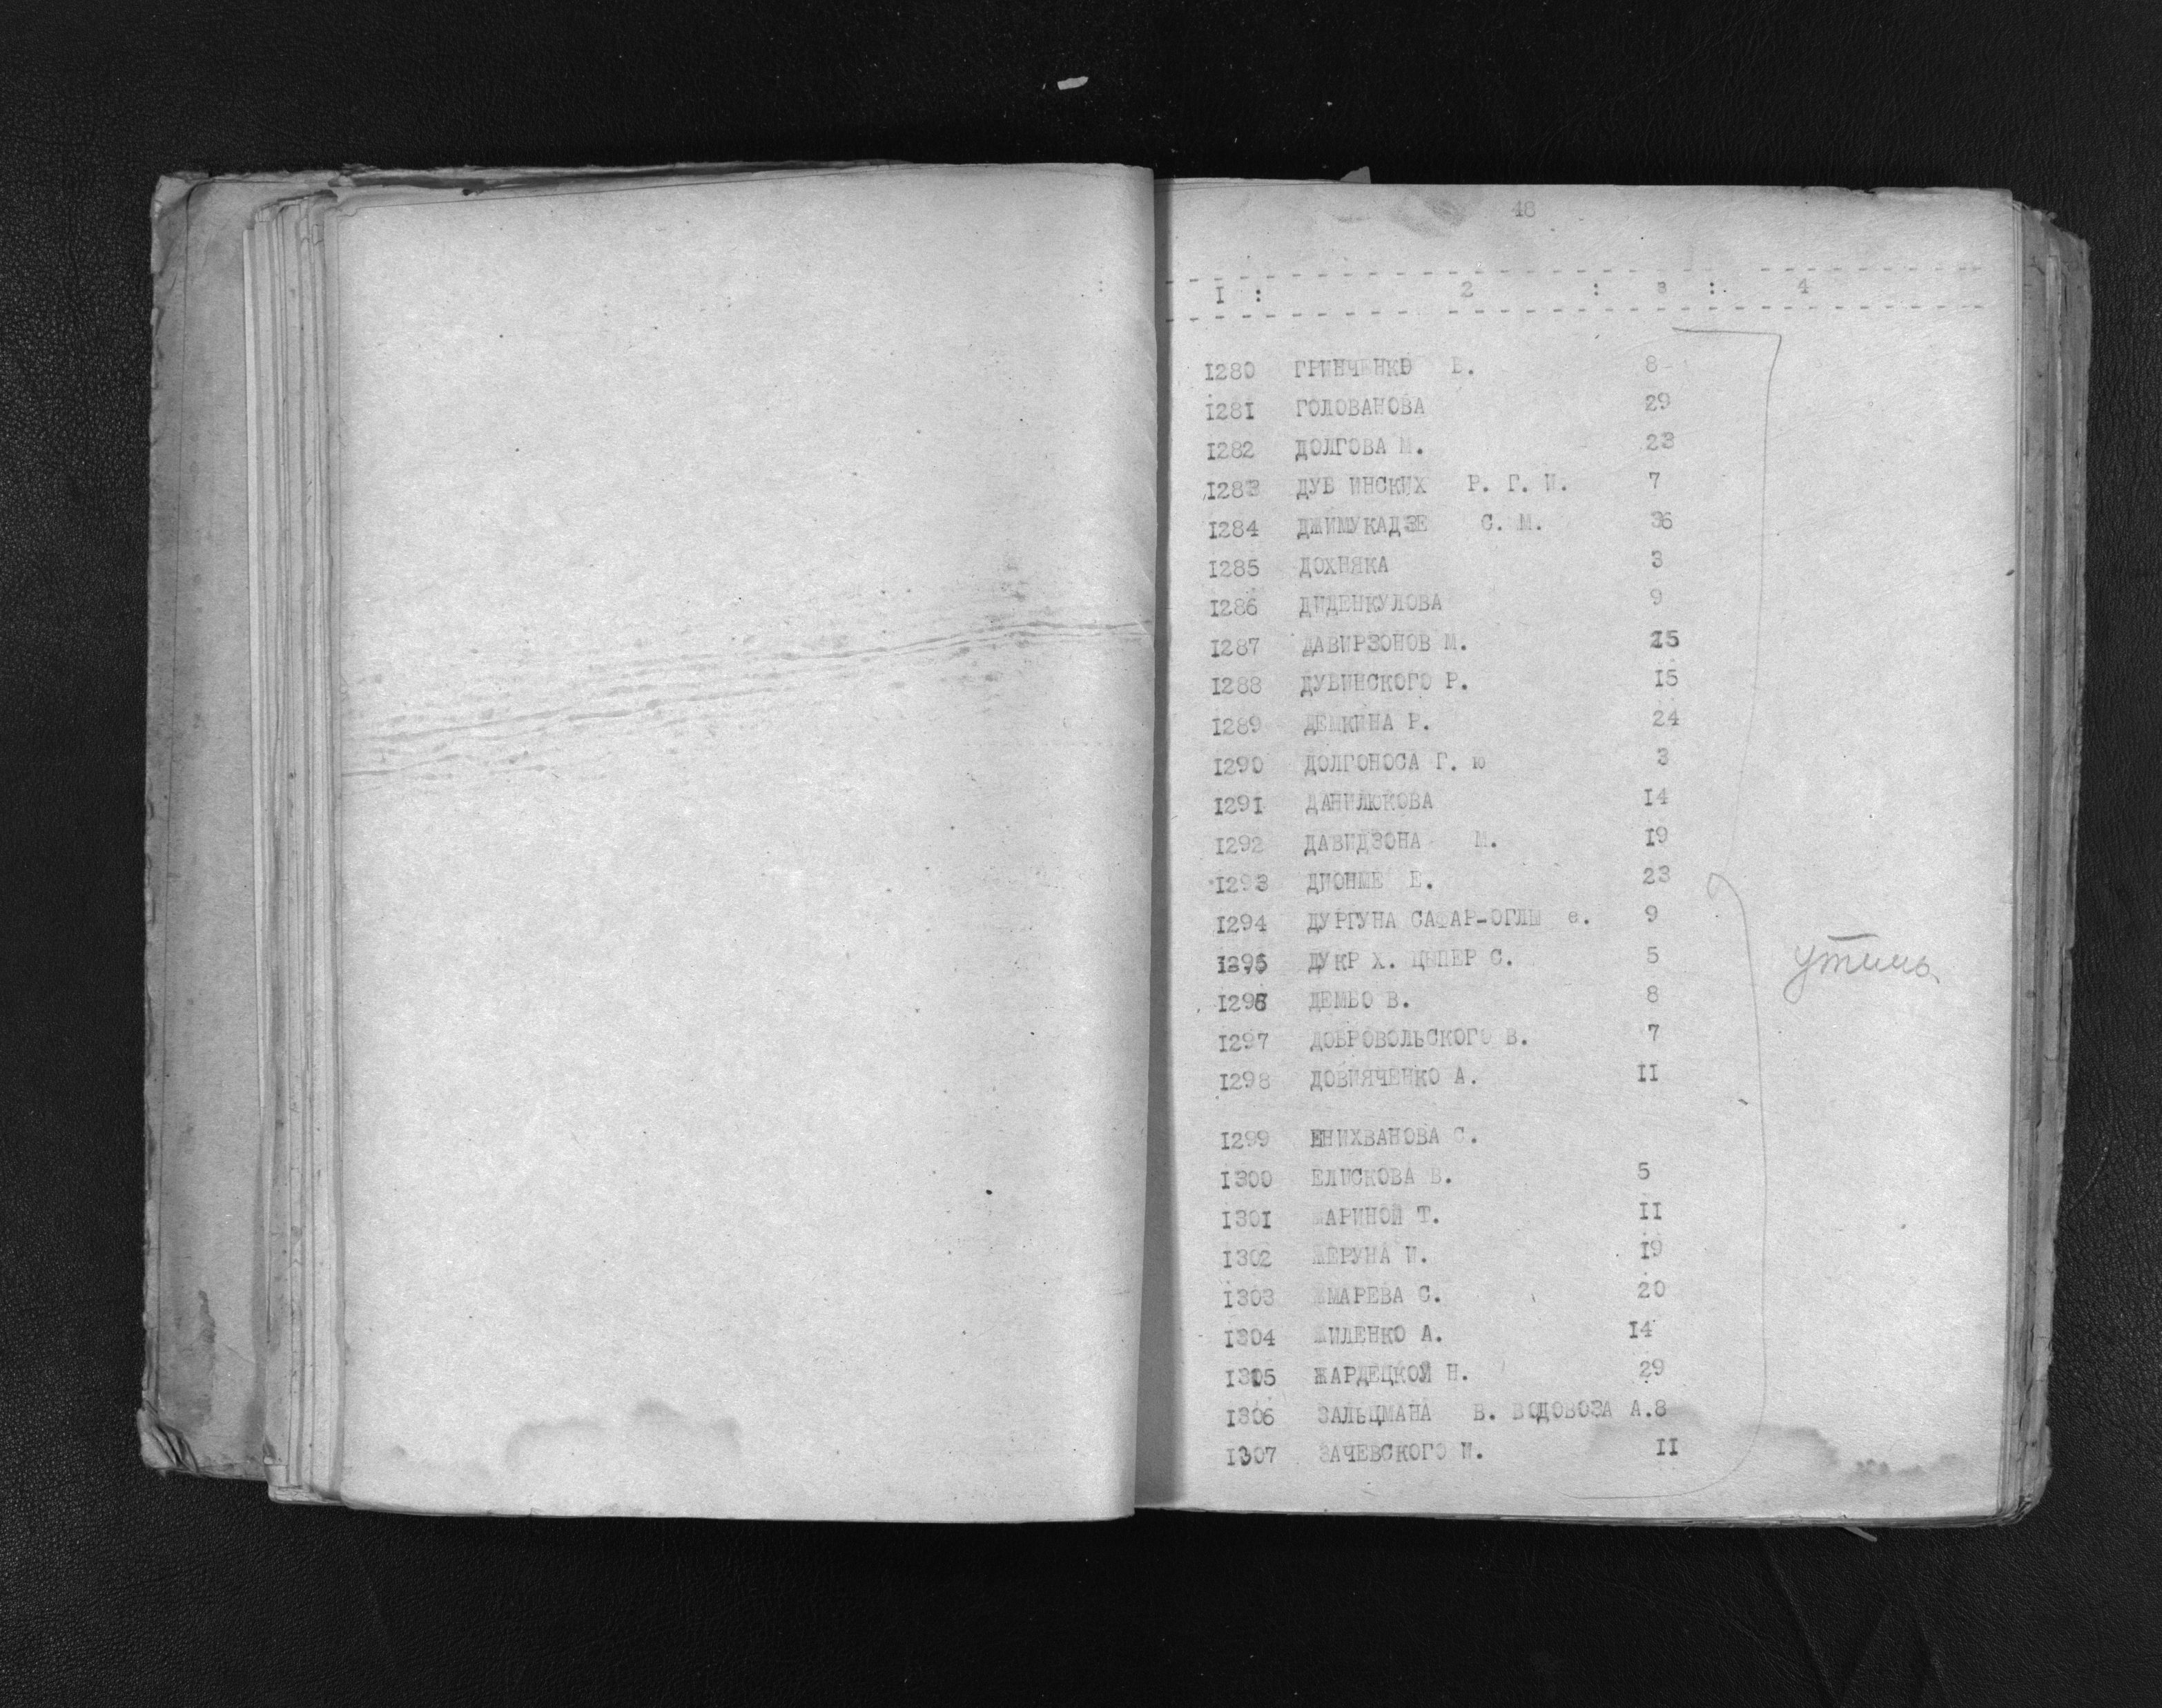 48
I : 2 : 3 : 4
I280 ГРИНЧЕНКО В. 8
I28I ГОЛОВАНОВА 29
I282 ДОЛГОВА М. 23
I283 ДУБ ИНСКИХ Р. Г. И. 7
I284 ДЖИМУКАДЗЕ С. М. 36
I285 ДОХНЯКА 3
I286 ДИДЕНКУЛОВА 9
I287 ДАВИРЗОНОВ М. 25
I288 ДУБИНСКОГО Р. I5
I289 ДЕМКИНА Р. 24
I290 ДОЛГОНОСА Г. ю 3
I29I ДАНИЛЮКОВА I4
I292 ДАВИДЗОНА М. I9
I293 Е. 23
I294 ДУРГУНА САФАР-ОГЛЫ е. 9
I295 ДУКР Х. ЦЫПЕР С. 5
I296 ДЕМБО В. 8
I297 ДОБРОВОЛЬСКОГО В. 7
I298 ДОВИЯЧЕНКО А. II
I299 ЕНИХВАНОВА С.
I300 ЕЛИСКОВА В. 5
I30I ЖАРИНОЙ Т. II
I302 ЖЕРУНА И. I9
I303 ЖМАРЕВА С. 20
I304 ЖИЛЕНКО А. I4
I305 ЖАРДЕЦКОЙ Н. 29
I306 ЗАЛЬЦМАНА В. ВОДОВОЗА А.8
I307 ЗАЧЕВСКОГО И. II
утиль